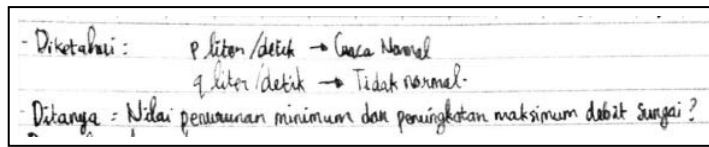 - Diketahui : p liter /detik → Cuaca Normal
q liter /detik → Tidak normal.
- Ditanya = Nilai penurunan minimum dan peningkatan maksimum debit sungai ?